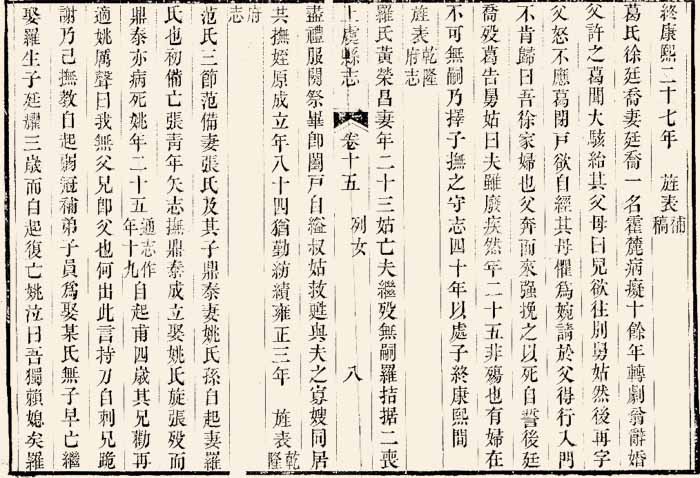 終康熙二十七年　旌表補稿
葛氏徐廷喬妻廷喬一名霍麓病癡十餘年轉劇翁辭婚
父許之葛聞大駭紿其父母曰兒欲往别舅姑然後再字
父怒不應葛閉戸欲自經其母懼爲婉請於父得行入門
不肯歸曰吾徐家婦也父奔而來强挽之以死自誓後廷
喬殁葛告舅姑曰夫雖廢疾然年二十五非殤也有婦在
不可無嗣乃擇子撫之守志四十年以處子終康熙間
旌表乾隆府志
羅氏黄榮昌妻年二十三姑亡夫繼殁無嗣羅拮据二喪
上虞縣志　卷十五　列女　八
盡禮服闋祭畢即闔戸自縊叔姑救甦與夫之寡嫂同居
共撫姪原成立年八十四猶勤紡績雍正三年　旌表乾隆
府志
范氏三節范備妻張氏及其子鼎泰妻姚氏孫自起妻羅
氏也初備亡張青年矢志撫鼎泰成立娶姚氏旋張殁而
鼎泰亦病死姚年二十五通志作年十九自起甫四歲其兄勸再
適姚厲聲曰我無父兄即父也何出此言持刀自刺兄跪
謝乃已撫教自起弱冠補弟子員爲娶某氏無子早亡繼
娶羅生子廷耀三歲而自起復亡姚泣曰吾獨賴媳矣羅